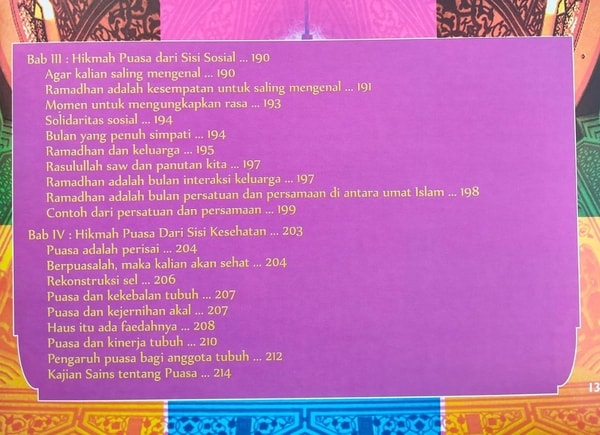 Bab III : Hikmah Puasa dari Sisi Sosial ... 190
Agar kalian saling mengenal ... 190
Ramadhan adalah kesempatan untuk saling mengenal ... 191
Momen untuk mengungkapkan rasa ... 193
Solidaritas sosial ... 194
Bulan yang penuh simpati ... 194
Ramadhan dan keluarga ... 195
Rasulullah saw dan panutan kita ... 197
Ramadhan adalah bulan interaksi keluarga ... 197
Ramadhan adalah bulan persatuan dan persamaan di antara umat Islam ... 198
Contoh dari persatuan dan persamaan ... 199
Bab IV : Hikmah Puasa Dari Sisi Kesehatan ... 203
Puasa adalah perisai ... 204
Berpuasalah, maka kalian akan sehat ... 204
Rekonstruksi sel ... 206
Puasa dan kekebalan tubuh ... 207
Puasa dan kejernihan akal ... 207
Haus itu ada faedahnya ... 208
Puasa dan kinerja tubuh ... 210
Pengaruh puasa bagi anggota tubuh ... 212
Kajian Sains tentang Puasa ... 214
13